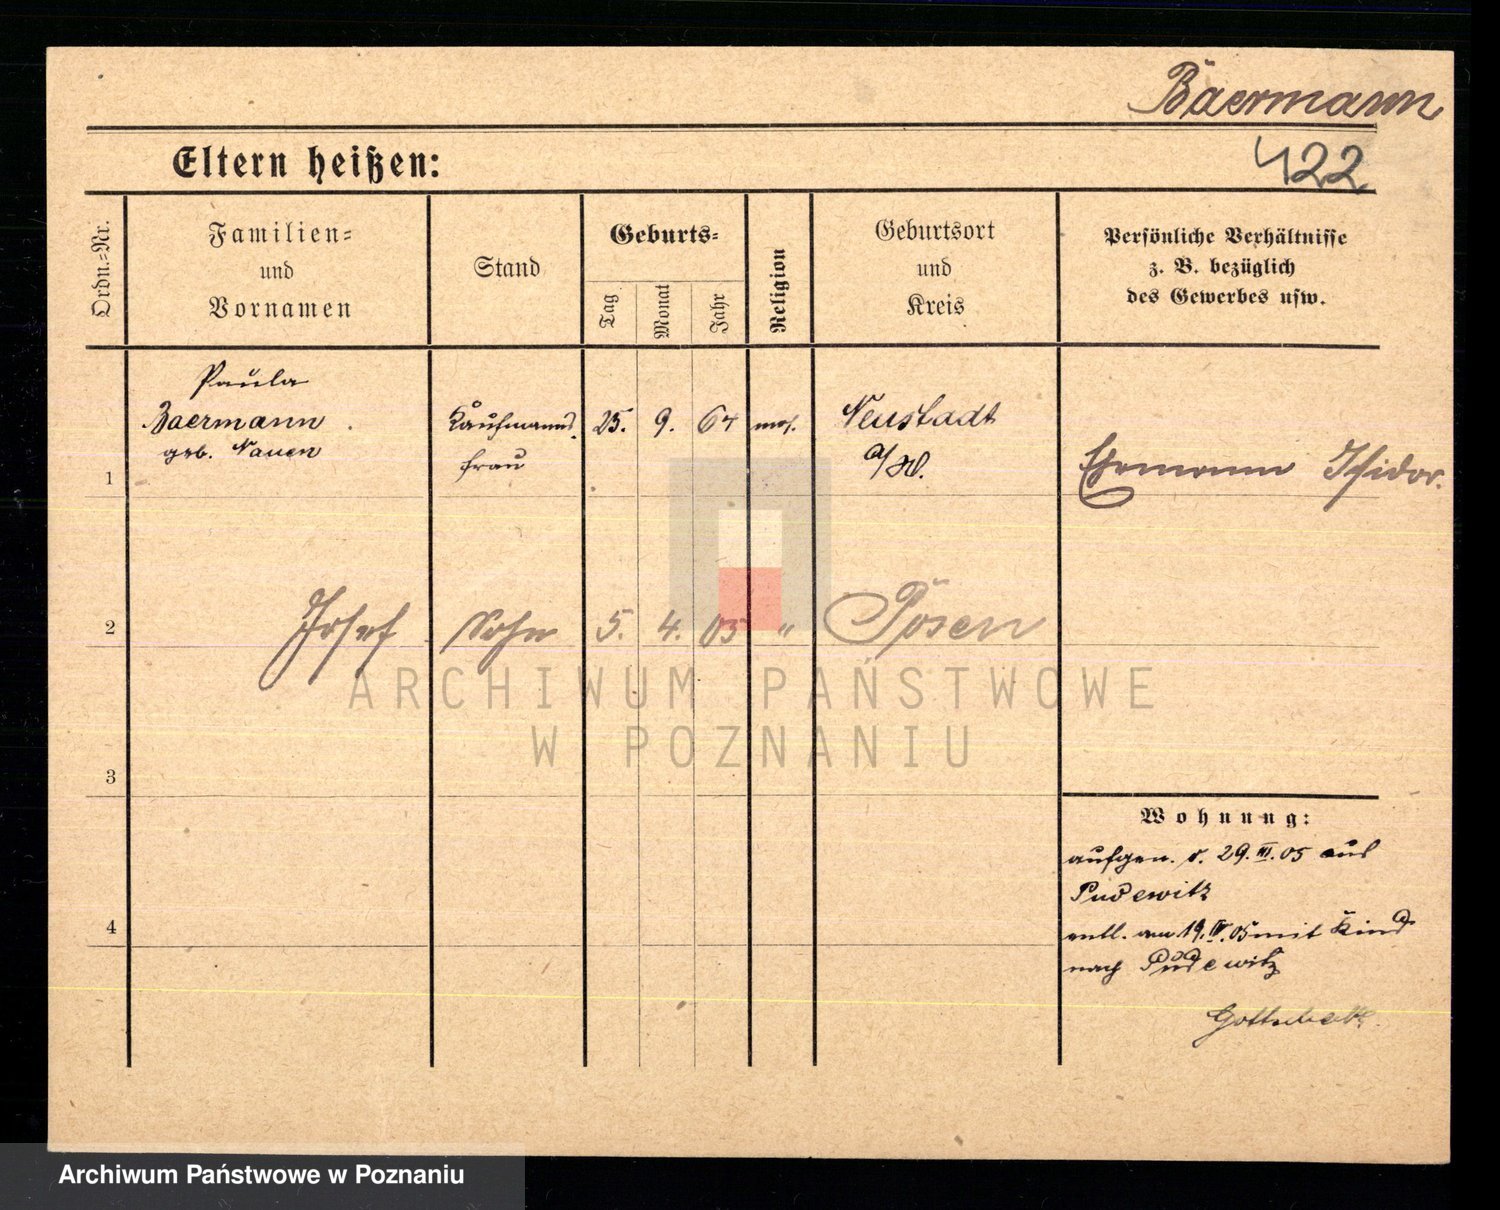 Baermann
422
Eltern heißen:
Ordn.-Nr.
Familien-
und
Vornamen
Stand
Geburts-
Tag
Monat
Jahr
Religion
Geburtsort
und
Kreis
Persönliche Verhältnisse
z. B. bezüglich
des Gewerbes usw.
1
Paula
Baermann
geb. Nauen
Kaufmanns-
frau
25. 9. 64 mos.
Neustadt
a/W.
Ehemann Isidor.
2 Josef Sohn 5. 4. 05 " Posen
3
4
Wohnung:
aufgen. d. 29.III.05 aus
Pudewitz
entl. am 19.IV.05 mit Kind
nach Pudewitz
ARCHIWUM PAŃSTWOWE
W POZNANIU
Archiwum Państwowe w Poznaniu